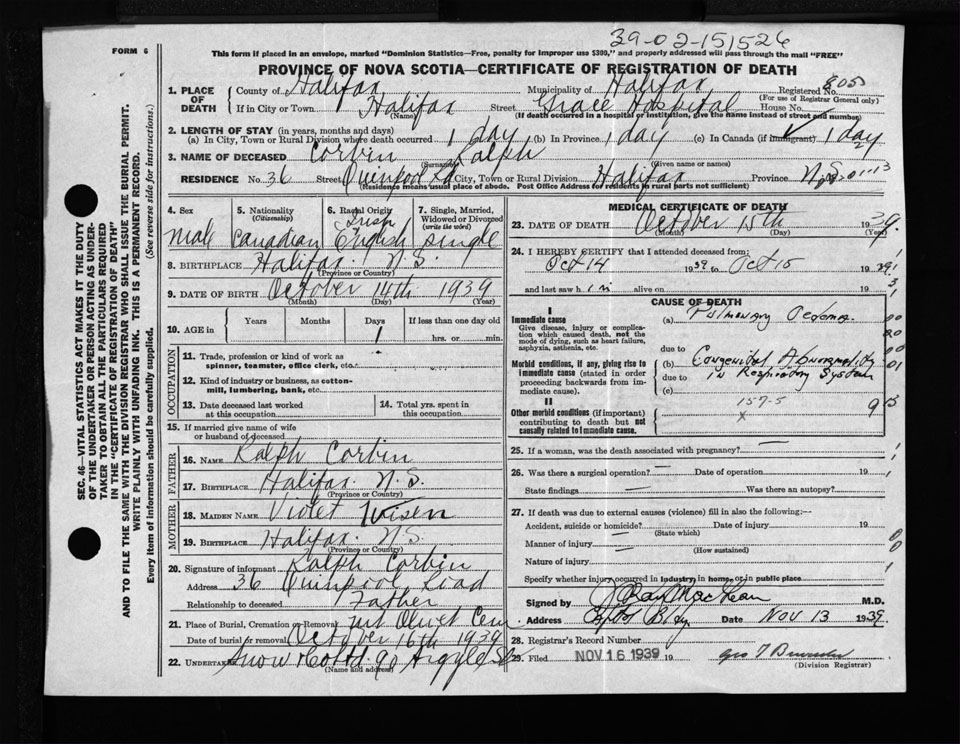 39-02-151526
FORM 6
This form if placed in an envelope, marked "Dominion Statistics—Free, penalty for improper use $300," and properly addressed will pass through the mail "FREE"
PROVINCE OF NOVA SCOTIA—CERTIFICATE OF REGISTRATION OF DEATH
SEC. 46—VITAL STATISTICS ACT MAKES IT THE DUTY
OF THE UNDERTAKER OR PERSON ACTING AS UNDER-
TAKER TO OBTAIN ALL THE PARTICULARS REQUIRED
IN THE "CERTIFICATE OF REGISTRATION OF DEATH"
AND TO FILE THE SAME WITH THE DIVISION REGISTRAR WHO SHALL ISSUE THE BURIAL PERMIT.
WRITE PLAINLY WITH UNFADING INK. THIS IS A PERMANENT RECORD.
Every item of information should be carefully supplied. (See reverse side for instructions.)
1. PLACE OF DEATH County of Halifax Municipality of Halifax Registered No. 805
(For use of Registrar General only)
If in City or Town Halifax Street Grace Hospital House No.
(Name) (If death occurred in a hospital or institution, give the name instead of street and number)
2. LENGTH OF STAY (in years, months and days)
(a) In City, Town or Rural Division where death occurred 1 day (b) In Province 1 day (c) In Canada (if immigrant) 1 day
3. NAME OF DECEASED Corbin Ralph
(Surname) (Given name or names)
RESIDENCE No. 36 Street Quinpool Rd City, Town or Rural Division Halifax Province N.S.
(Residence means usual place of abode. Post Office Address for residents in rural parts not sufficient)
4. Sex 5. Nationality (Citizenship) 6. Racial Origin 7. Single, Married, Widowed or Divorced (write the word)
Male Canadian Irish English Single
8. BIRTHPLACE Halifax N.S.
(Province or Country)
9. DATE OF BIRTH October 14th 1939
(Month) (Day) (Year)
10. AGE in Years Months Days If less than one day old
1 hrs. or min.
OCCUPATION
11. Trade, profession or kind of work as
spinner, teamster, office clerk, etc.
12. Kind of industry or business, as cotton-
mill, lumbering, bank, etc.
13. Date deceased last worked at this occupation
14. Total yrs. spent in this occupation
15. If married give name of wife
or husband of deceased
FATHER
16. NAME Ralph Corbin
17. BIRTHPLACE Halifax N.S.
(Province or Country)
MOTHER
18. MAIDEN NAME Violet
19. BIRTHPLACE Halifax N.S.
(Province or Country)
20. Signature of informant Ralph Corbin
Address 36 Quinpool Road
Relationship to deceased Father
21. Place of Burial, Cremation or Removal Mt Olivet Cem
Date of burial or removal October 16th 1939
22. UNDERTAKER Snow & Co Ltd 90 Argyle St
(Name and address)
MEDICAL CERTIFICATE OF DEATH
23. DATE OF DEATH October 15th 1939
(Month) (Day) (Year)
24. I HEREBY CERTIFY that I attended deceased from:
Oct 14 1939 to Oct 15 1939
and last saw him alive on 19
CAUSE OF DEATH
I
Immediate cause (a) Pulmonary Oedema
Give disease, injury or complica-
tion which caused death, not the
mode of dying, such as heart failure,
asphyxia, asthenia, etc.
due to
Morbid conditions, if any, giving rise to
immediate cause (stated in order
proceeding backwards from im-
mediate cause).
(b) Congenital Abnormality
due to in Respiratory System
(c)
157-5
II
Other morbid conditions (if important)
contributing to death but not
causally related to immediate cause.
x
25. If a woman, was the death associated with pregnancy?
26. Was there a surgical operation? Date of operation 19
State findings Was there an autopsy?
27. If death was due to external causes (violence) fill in also the following:—
Accident, suicide or homicide? Date of injury 19
(State which)
Manner of injury
(How sustained)
Nature of injury
Specify whether injury occurred in industry, in home, or in public place
Signed by J Ray MacLean M.D.
Address Bldg Date Nov 13 1939
28. Registrar's Record Number
29. Filed NOV 16 1939 19
(Division Registrar)